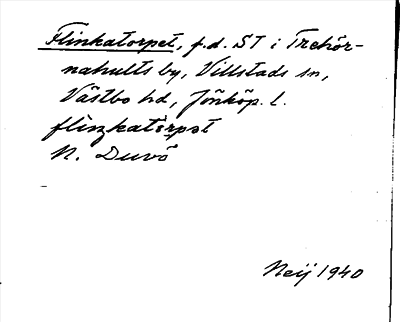 Flinkatorpet, f.d. ST i Trehör-
nahults by, Villstads sn,
Västbo hd, Jönköp. l.
flinkatòrpət
N. Duvö
Neij 1940